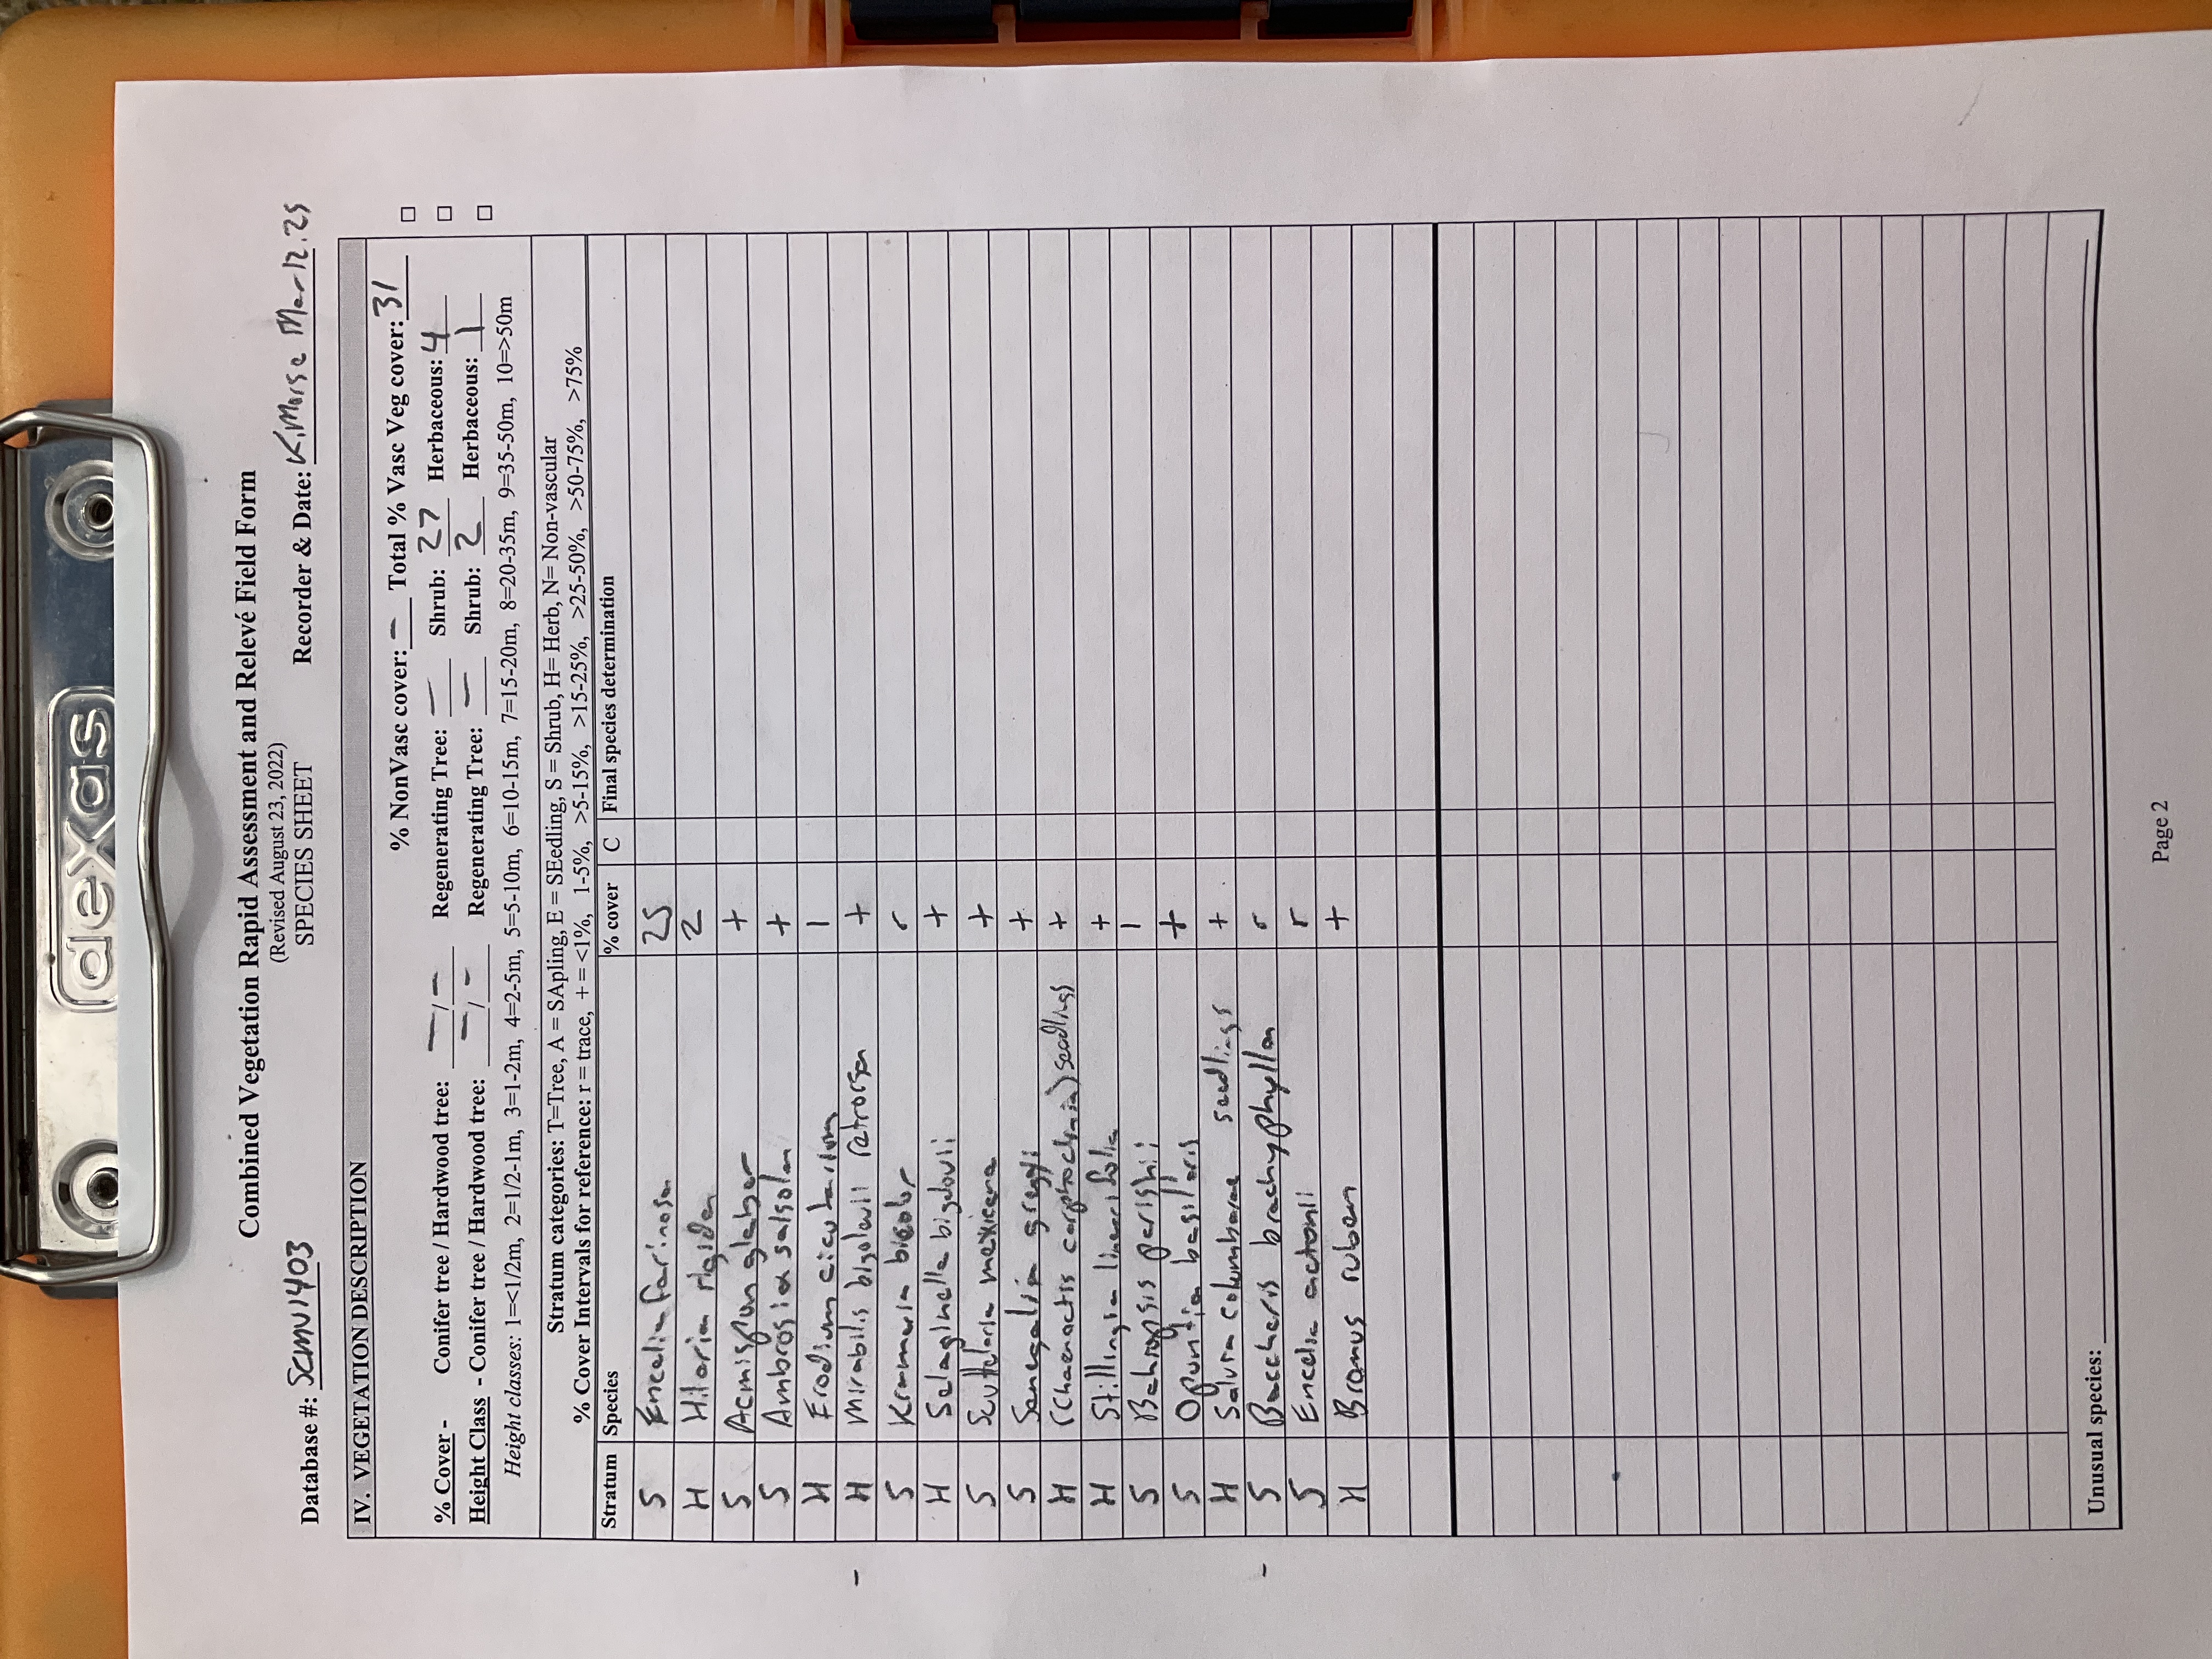 dexas
Combined Vegetation Rapid Assessment and Relevé Field Form
(Revised August 23, 2022)
SPECIES SHEET
Database #: Scmv1403 Recorder & Date: K.Morse Mar 12.25
IV. VEGETATION DESCRIPTION
% NonVasc cover: – Total % Vasc Veg cover: 31 □
% Cover - Conifer tree / Hardwood tree: – / – Regenerating Tree: – Shrub: 27 Herbaceous: 4 □
Height Class - Conifer tree / Hardwood tree: – / – Regenerating Tree: – Shrub: 2 Herbaceous: 1 □
Height classes: 1=<1/2m, 2=1/2-1m, 3=1-2m, 4=2-5m, 5=5-10m, 6=10-15m, 7=15-20m, 8=20-35m, 9=35-50m, 10=>50m
Stratum categories: T=Tree, A = SApling, E = SEedling, S = Shrub, H= Herb, N= Non-vascular
% Cover Intervals for reference: r = trace, + = <1%, 1-5%, >5-15%, >15-25%, >25-50%, >50-75%, >75%
Stratum Species % cover C Final species determination
S Encelia farinosa 25
H Hilaria rigida 2
S Acmispon glaber +
S Ambrosia salsola +
H Erodium cicutarium 1
H Mirabilis bigelovii retrorsa +
S Krameria bicolor r
H Selaginella bigelovii +
S Scutelaria mexicana +
S Senegalia greggii +
H (Chaenactis carphoclinia) seedlings +
H Stillingia linearifolia +
S Bahiopsis parishii 1
S Opuntia basilaris +
H Salvia columbarae seedlings +
S Baccharis brachyphylla r
S Encelia actonii r
H Bromus rubens +
Unusual species:
Page 2